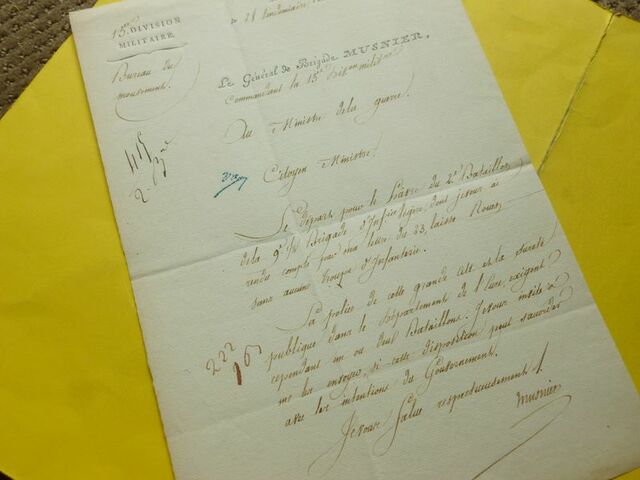 15.e DIVISION
MILITAIRE.
Bureau du
mouvement.
28 Vendémiaire
Le Général de Brigade MUSNIER,
Commandant la 15.e Div.on militre
Au Ministre de la guerre.
Citoyen Ministre.
Le départ pour le havre du 2.e Bataillon
de la 9.e 1/2 Brigade d'Infrie légère, dont je vous ai
rendu compte par ma lettre du 23, laisse Rouen
sans aucune troupe d'Infanterie.
La police de cette grande cité et la sureté
publique dans le Département de l'Eure, exigent
cependant un ou deux Bataillons. Je vous invite à
me les envoyer, si cette disposition peut s'accorder
avec les intentions du Gouvernement.
Je vous salue respectueusement
Musnier
222